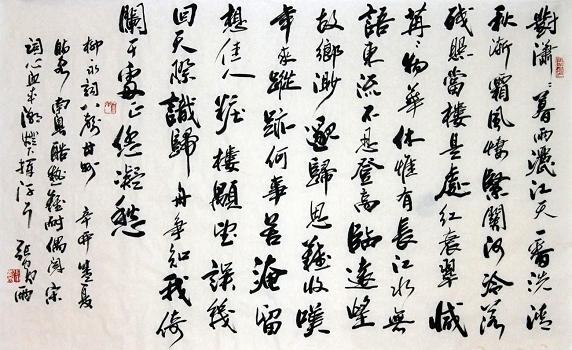 對瀟〻暮雨灑江天一番洗清
秋漸霜風悽緊關河冷落
殘照當樓是處紅衰翠減
苒〻物華休惟有長江水無
語東流不忍登高臨遠望
故鄉渺邈歸思難收嘆
年來蹤跡何事苦淹留
想佳人粧樓顒望誤幾
回天際識歸舟爭知我倚
闌干處正恁凝愁
柳永詞八聲甘州 辛卯夏
南粵酷熱難耐偶閱宋
詞心血來潮揮汗